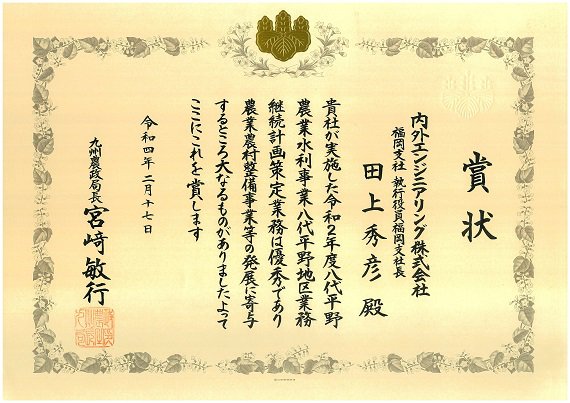 賞状
内外エンジニアリング株式会社
福岡支社 執行役員福岡支社長
田上秀彦 殿
貴社が実施した令和2年度八代平野
農業水利事業八代平野地区業務
継続計画策定業務は優秀であり
農業農村整備事業等の発展に寄与
するところ大なるものがありましたよって
ここにこれを賞します
令和四年二月十七日
九州農政局長 宮﨑敏行